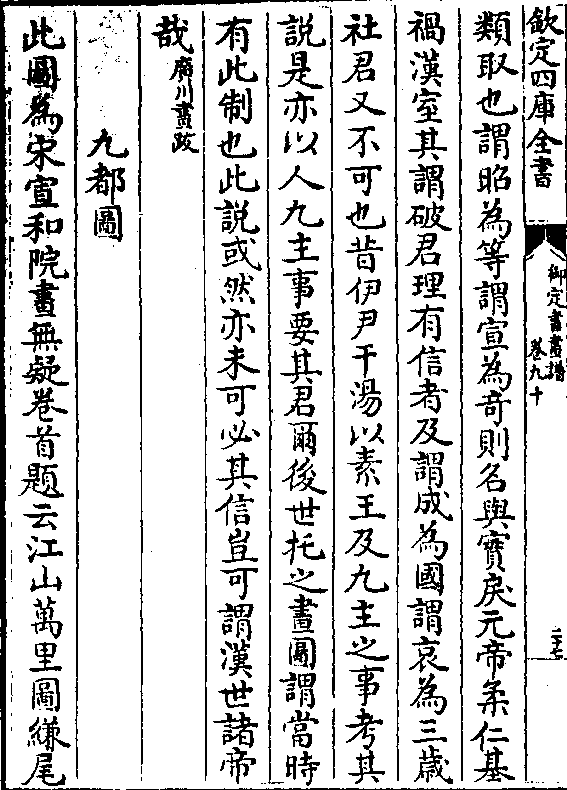 欽定四庫全書
御定書畫譜
卷九十
二十七
類取也謂昭為等謂宣為奇則名與實戾元帝柔仁基
禍漢室其謂破君理有信者及謂成為國謂哀為三歲
社君又不可也昔伊尹干湯以素王及九主之事考其
說是亦以人九主事要其君爾後世托之畫圖謂當時
有此制也此說或然亦未可必其信豈可謂漢世諸帝
哉廣川畫跋
九都圖
此圖為宋宣和院畫無疑卷首題云江山萬里圖縑尾